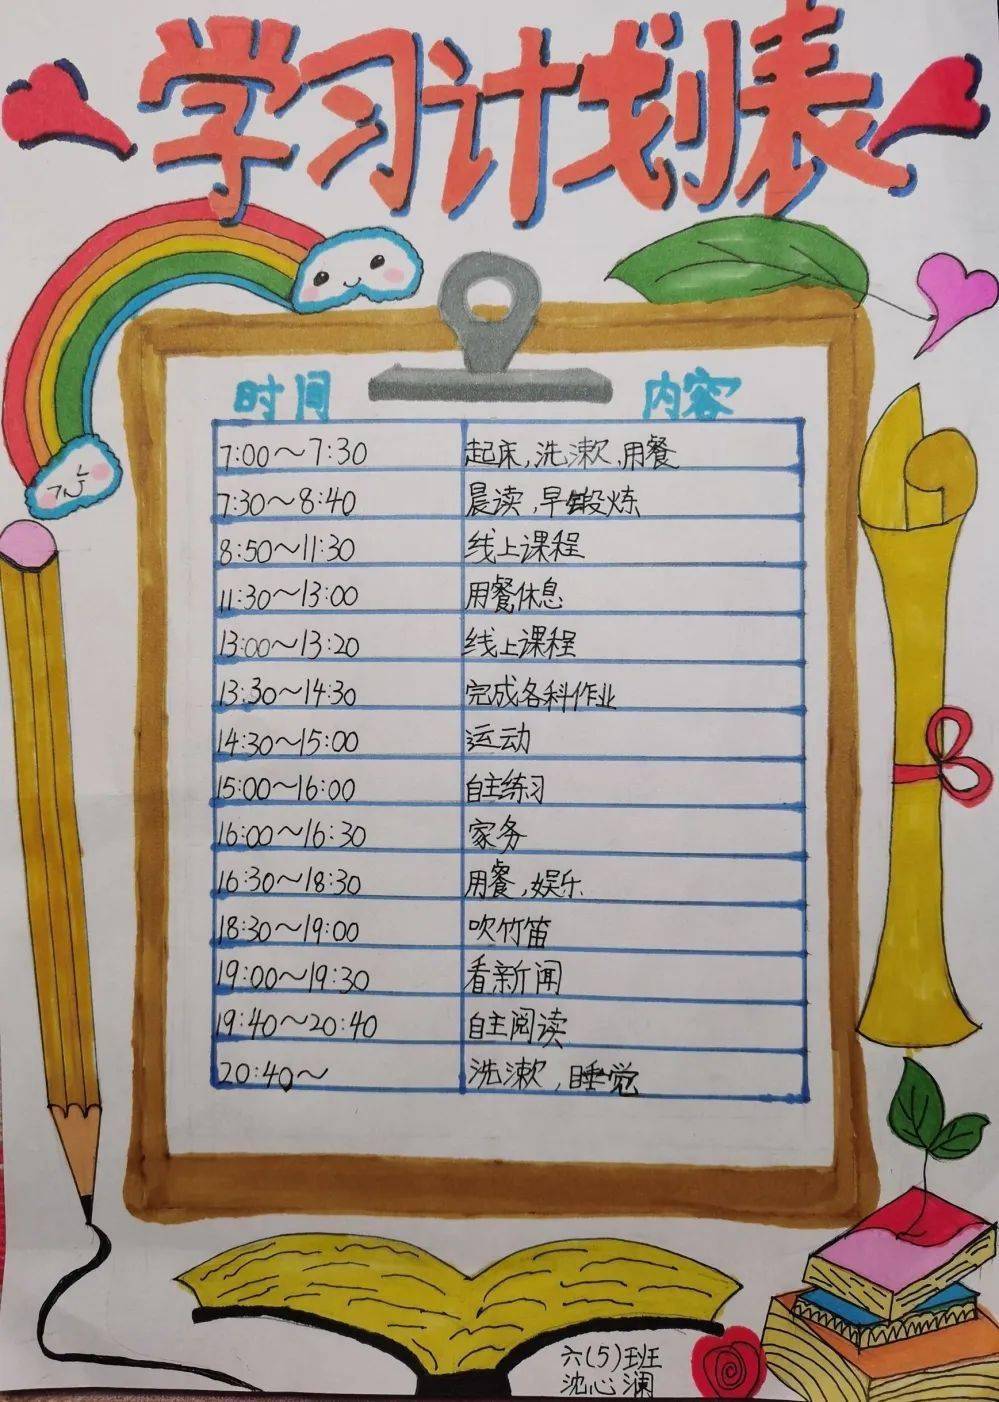 学习计划表
时间 内容
7:00～7:30 起床,洗漱,用餐
7:30～8:40 晨读,早锻炼
8:50～11:30 线上课程
11:30～13:00 用餐休息
13:00～13:20 线上课程
13:30～14:30 完成各科作业
14:30～15:00 运动
15:00～16:00 自主练习
16:00～16:30 家务
16:30～18:30 用餐,娱乐
18:30～19:00 吹竹笛
19:00～19:30 看新闻
19:40～20:40 自主阅读
20:40～ 洗漱,睡觉
六(5)班
沈心澜